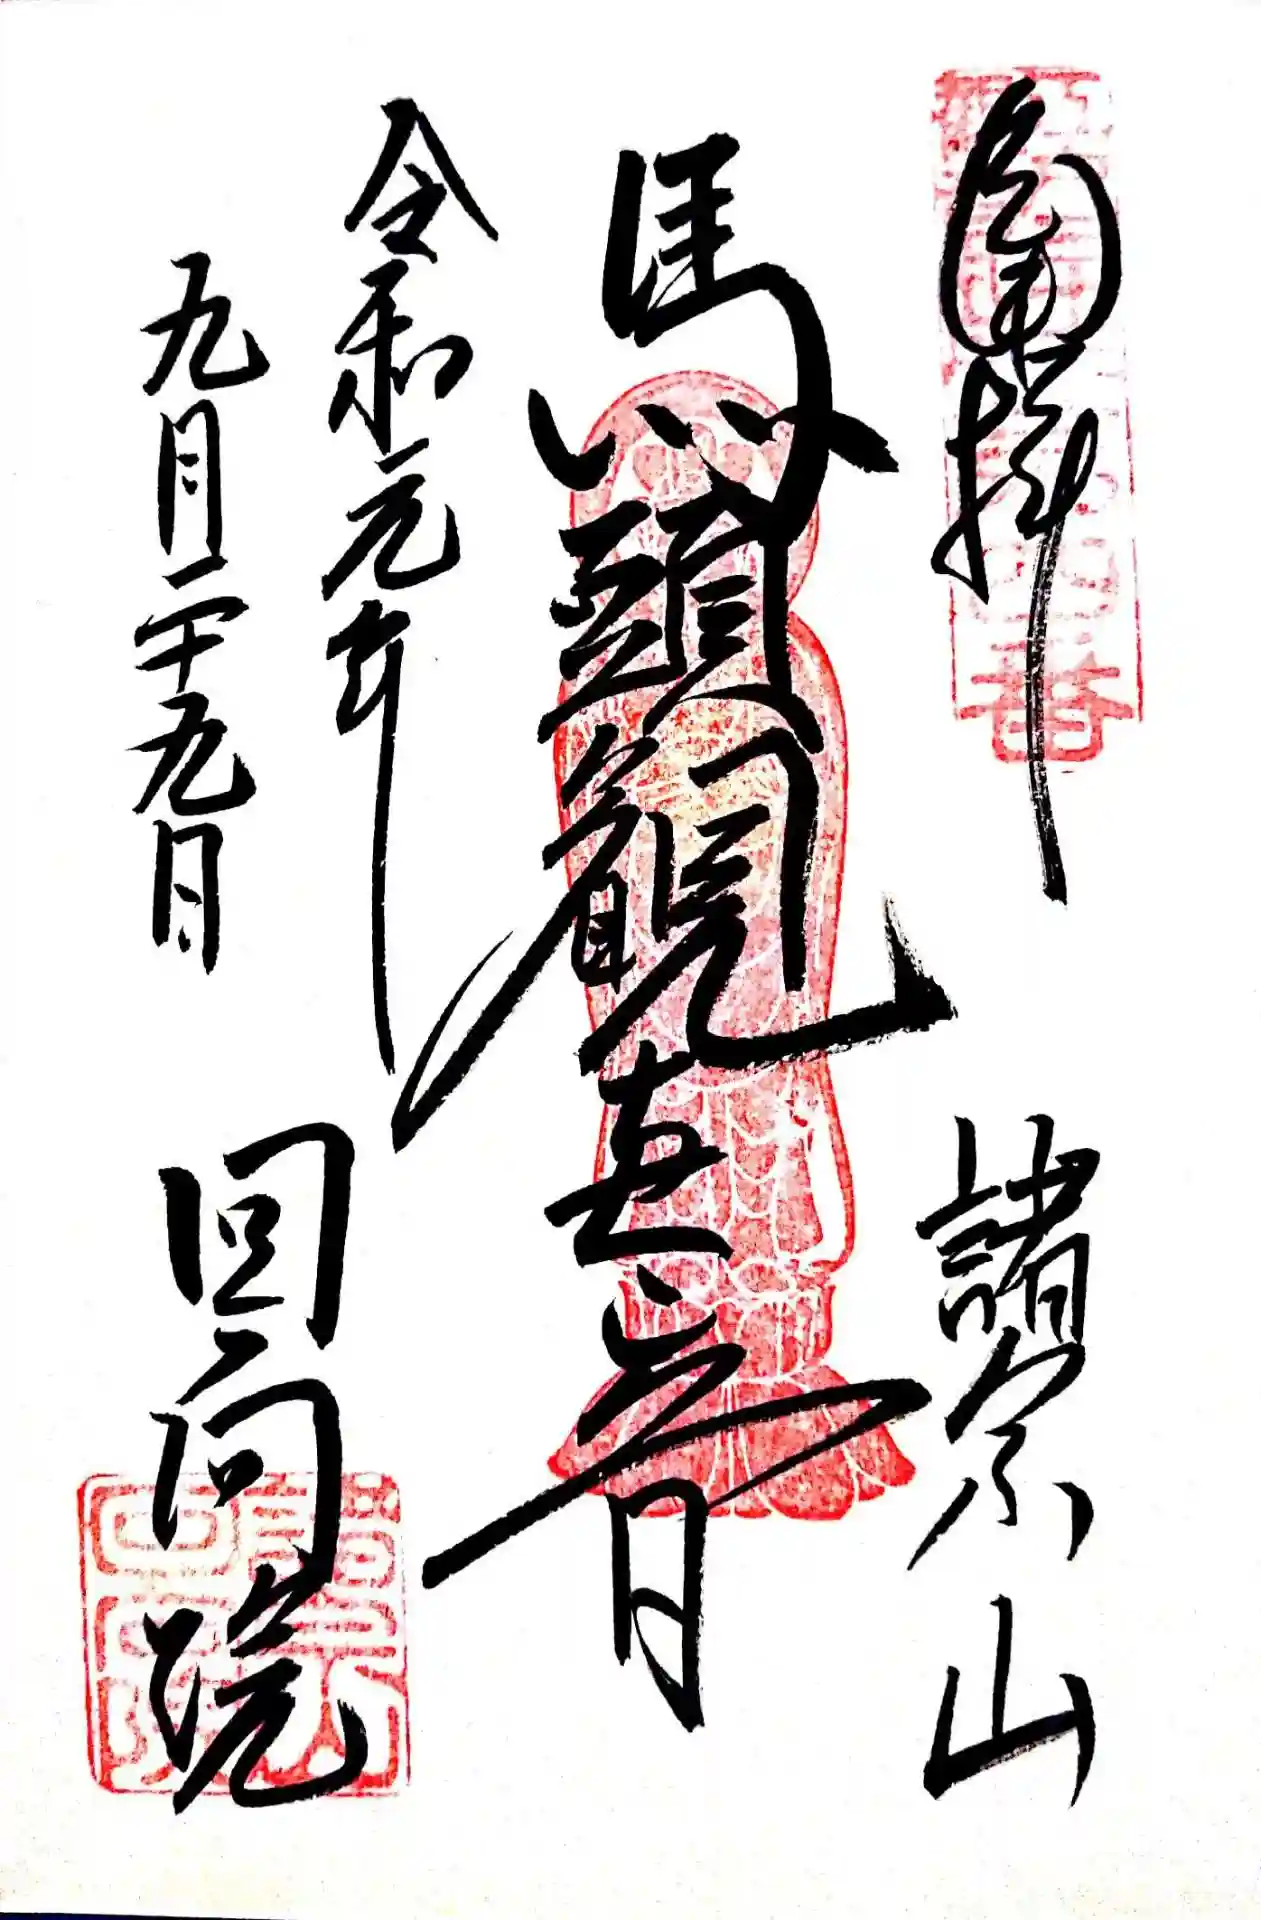 拝
諸宗山
番
馬頭觀世音
令和元年
九月二十九日
回向院